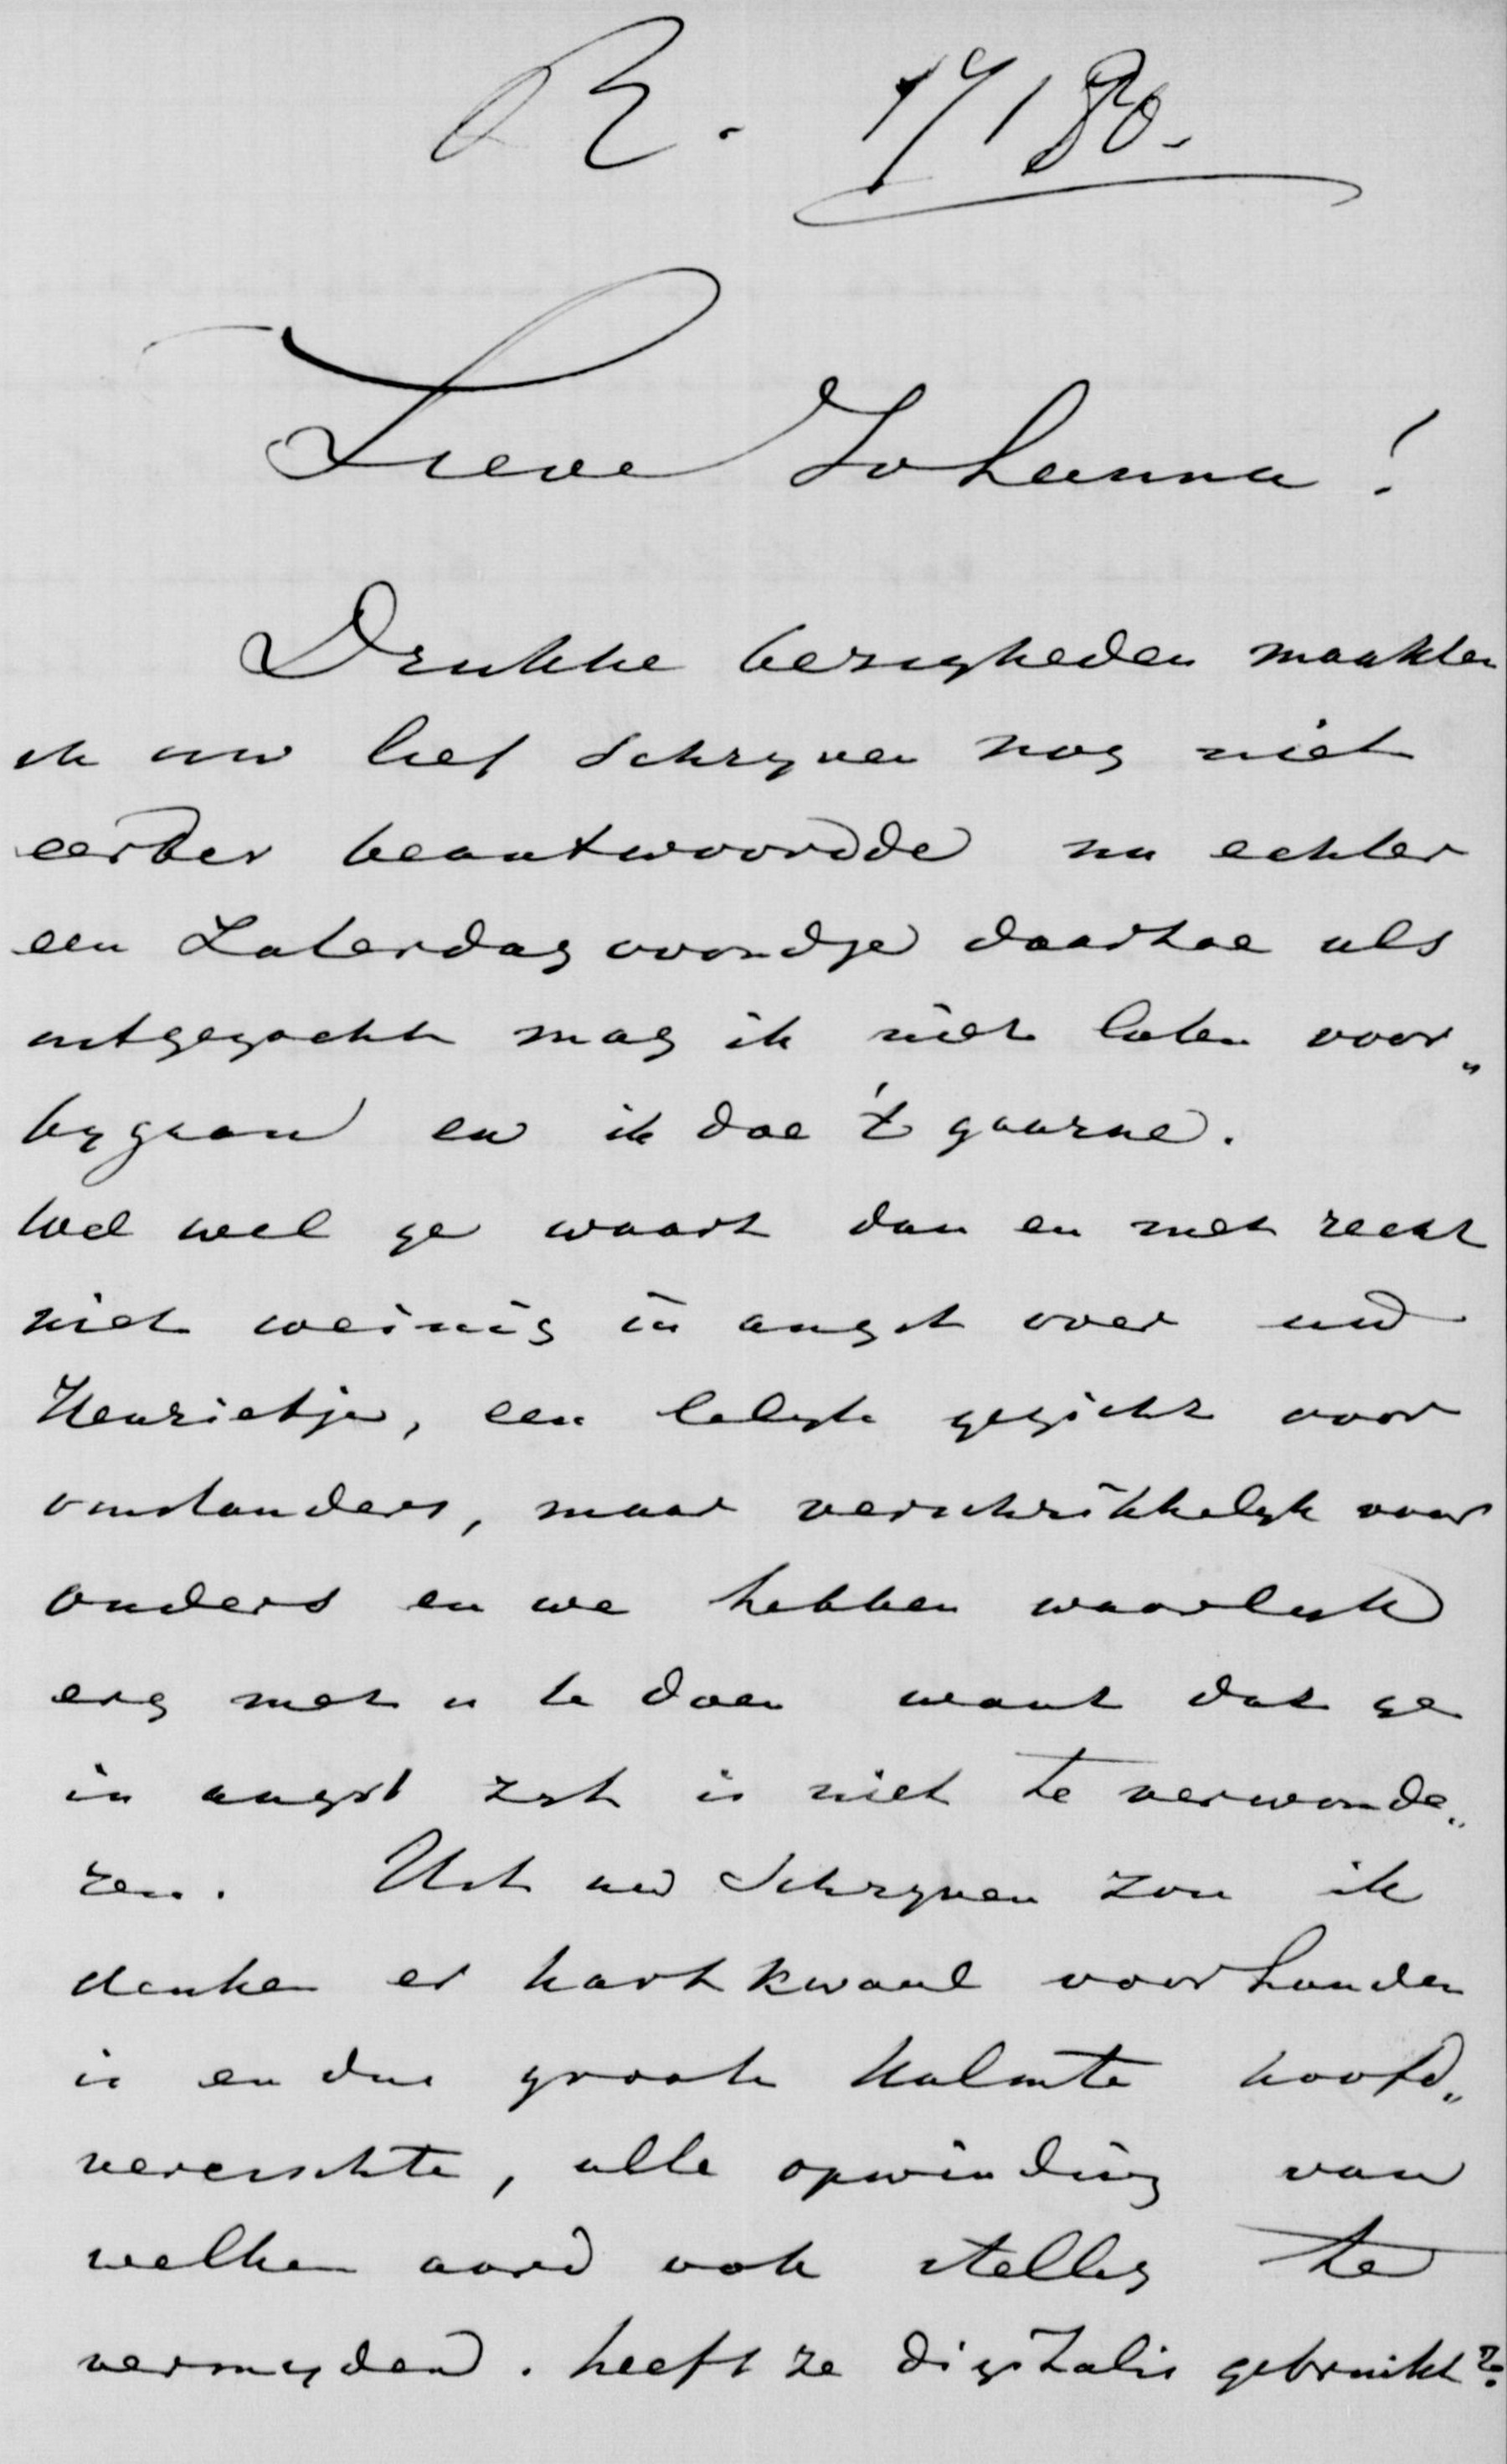 R. 17/1 80.
Lieve Johanna!
Drukke bezigheden maakten
ik uw lief schryven nog niet
eerder beantwoordde nu echter
een Zaterdagavondje daartoe als
uitgezocht mag ik niet laten voor„
bygaan en ik doe 't gaarne.
Wel wel ge waart dan en met recht
niet weinig in angst over uw
Henrietje, een lelyk gezicht voor
omstanders, maar verschrikkelyk voor
ouders en we hebben waarlyk
erg met u te doen want dat ge
in angst zat is niet te verwonde„
ren. Uit uw schryven zou ik
denken er hartkwaal voorhanden
is en dus groote kalmte hoofd„
vereischte, alle opwinding van
welken aard ook stellig te
vermyden. heeft ze digitalis gebruikt?